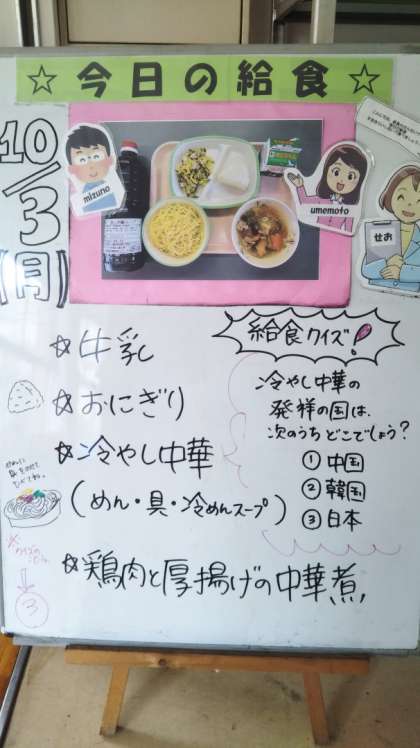 ☆今日の給食☆
10/3(月)
mizuno
umemoto
せお
☆牛乳
☆おにぎり
☆冷やし中華
(めん・具・冷めんスープ)
☆鶏肉と厚揚げの中華煮
給食クイズ!
冷やし中華の
発祥の国は、
次のうちどこでしょう?
①中国
②韓国
③日本
③